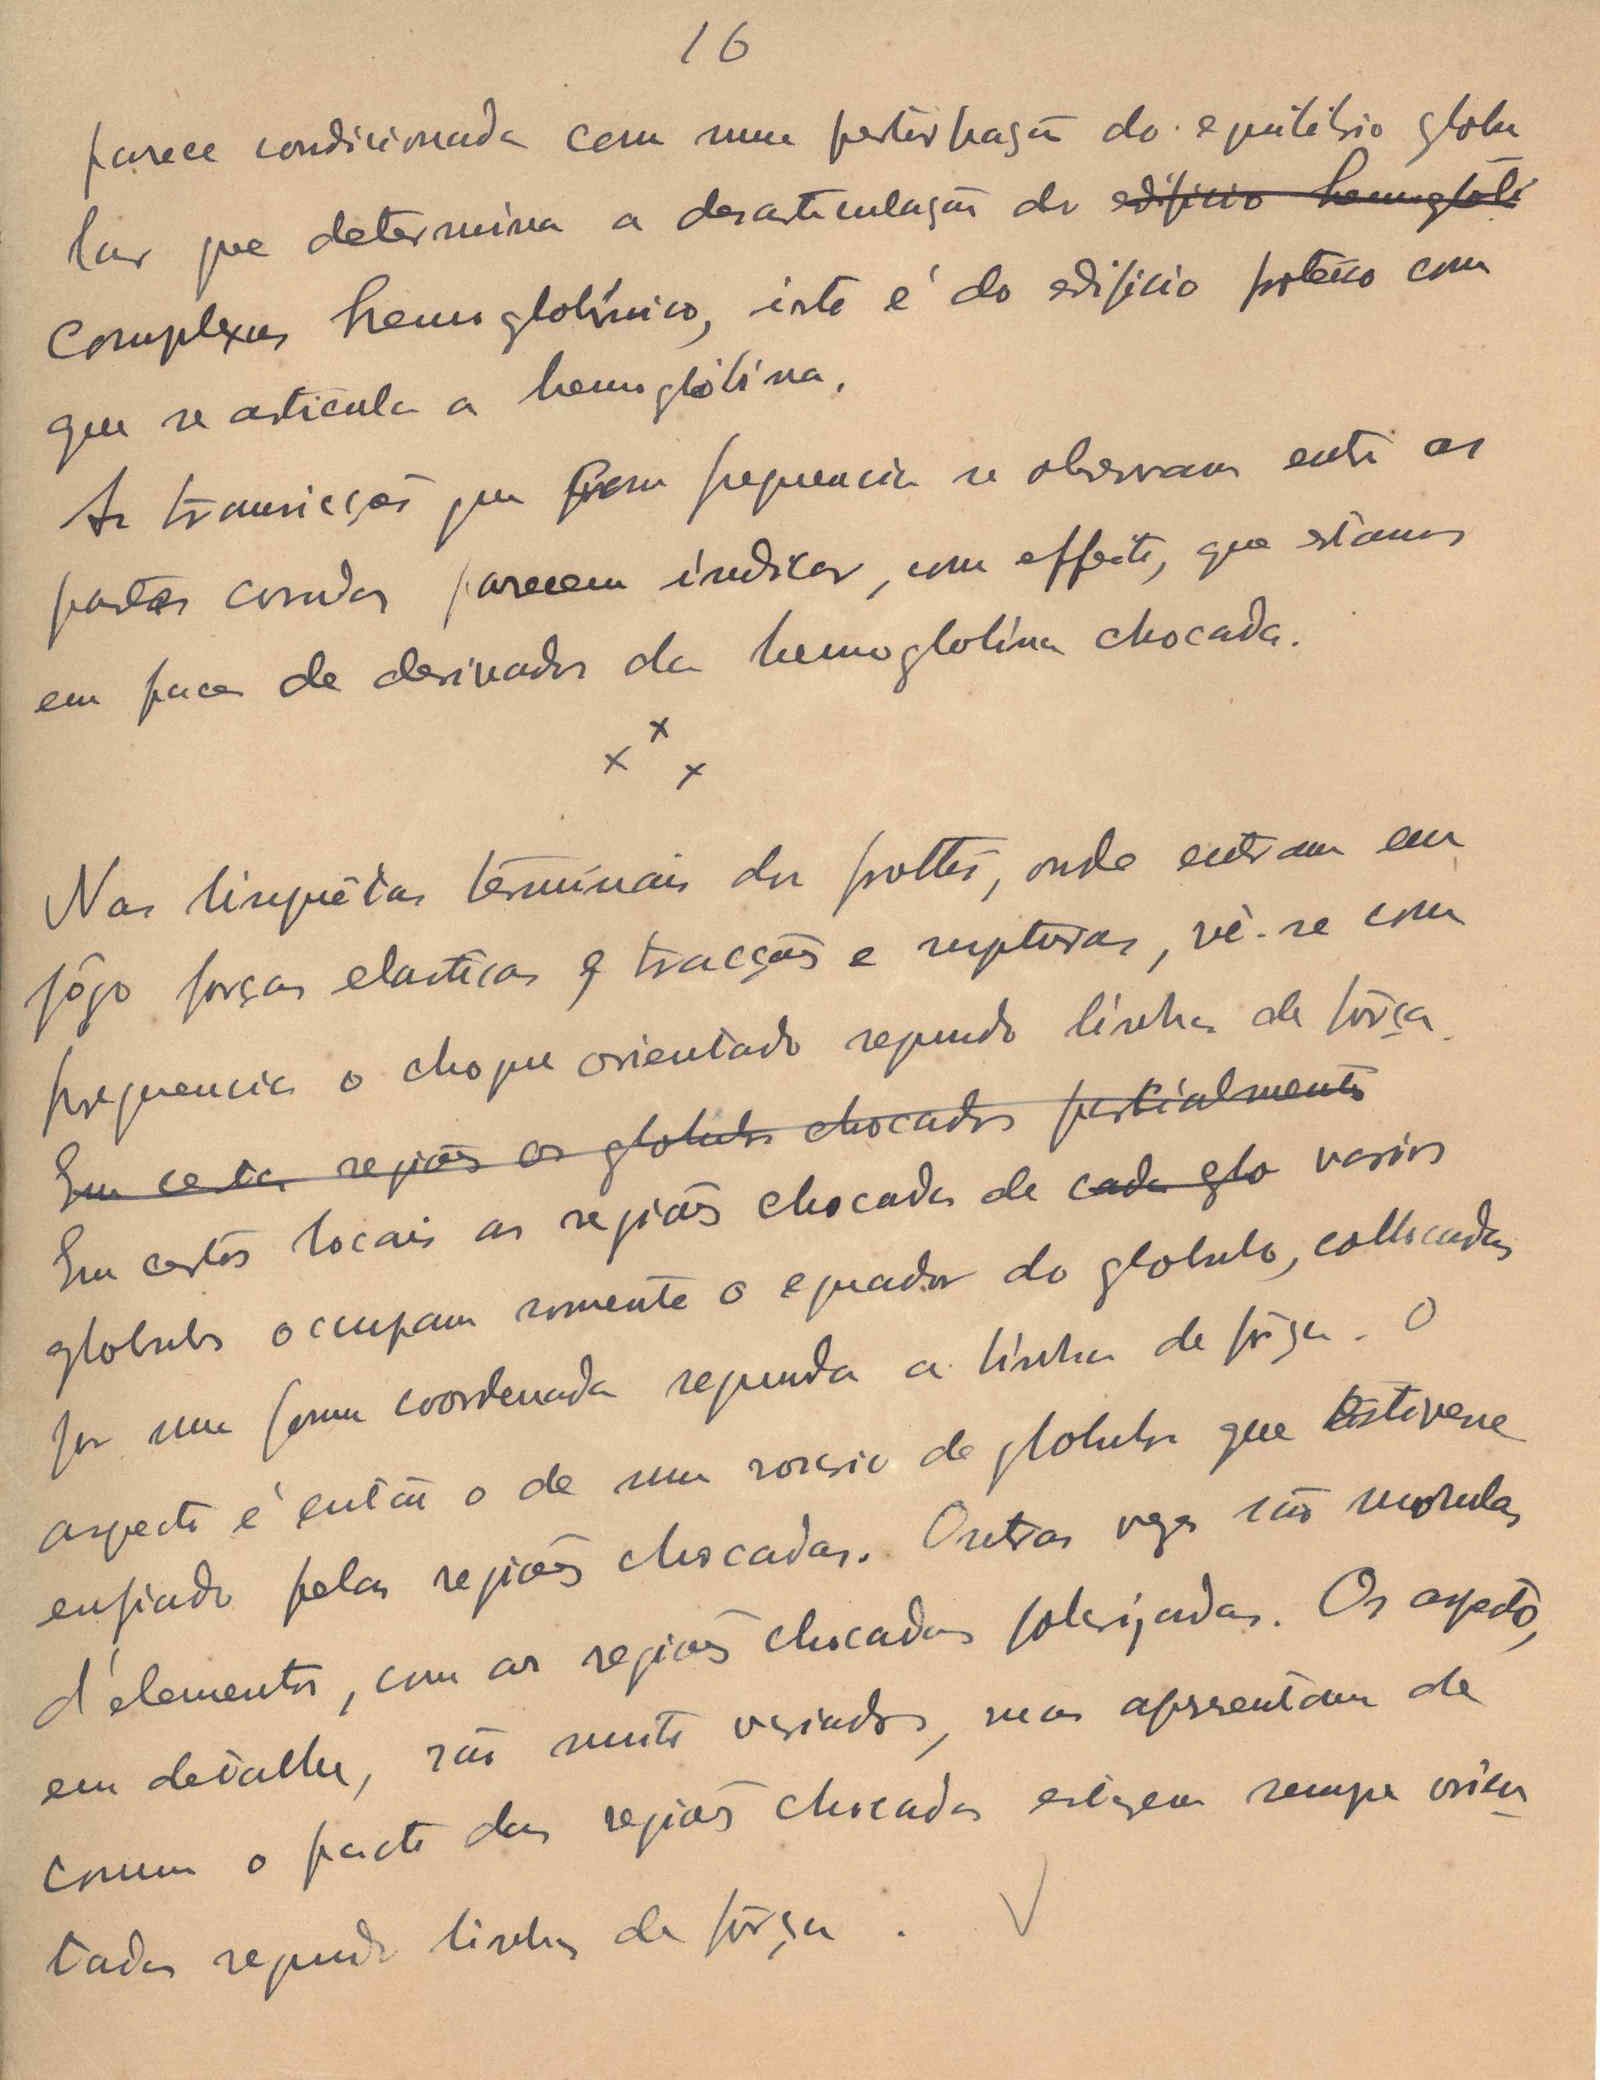 16
parece condicionada com uma perturbação do equilibrio globu
lar que determina a desarticulação do edificio hemoglobi
complexus hemoglobinico, isto é do edificio proteico com
que se articula a hemoglobina.
As transicções que com frequencia se observam entre as
partes coradas parecem indicar, com effeito, que estamos
em face de derivados da hemoglobina chocada.
x x x
Nas linguêtas terminais dos frottis, onde entram em
jôgo forças elasticas e tracções e rupturas, vê-se com
frequencia o choque orientado segundo linhas de fôrça.
Em certas regiões os globulos chocados partialmente
Em certos locais as regiões chocadas de cada glo varios
globulos occupam somente o equador do globulo, collocadas
por uma forma coordenada segundo a linha de fôrça. O
aspecto é então o de um rosario de globulos que estivesse
enfiado pelas regiões chocadas. Outras vezes são morulas
d'elementos, com as regiões chocadas polarizadas. Os aspectos,
em detalhe, são muito variados, mas apresentam de
comum o facto das regiões chocadas estarem sempre orien
tadas segundo linhas de fôrça.